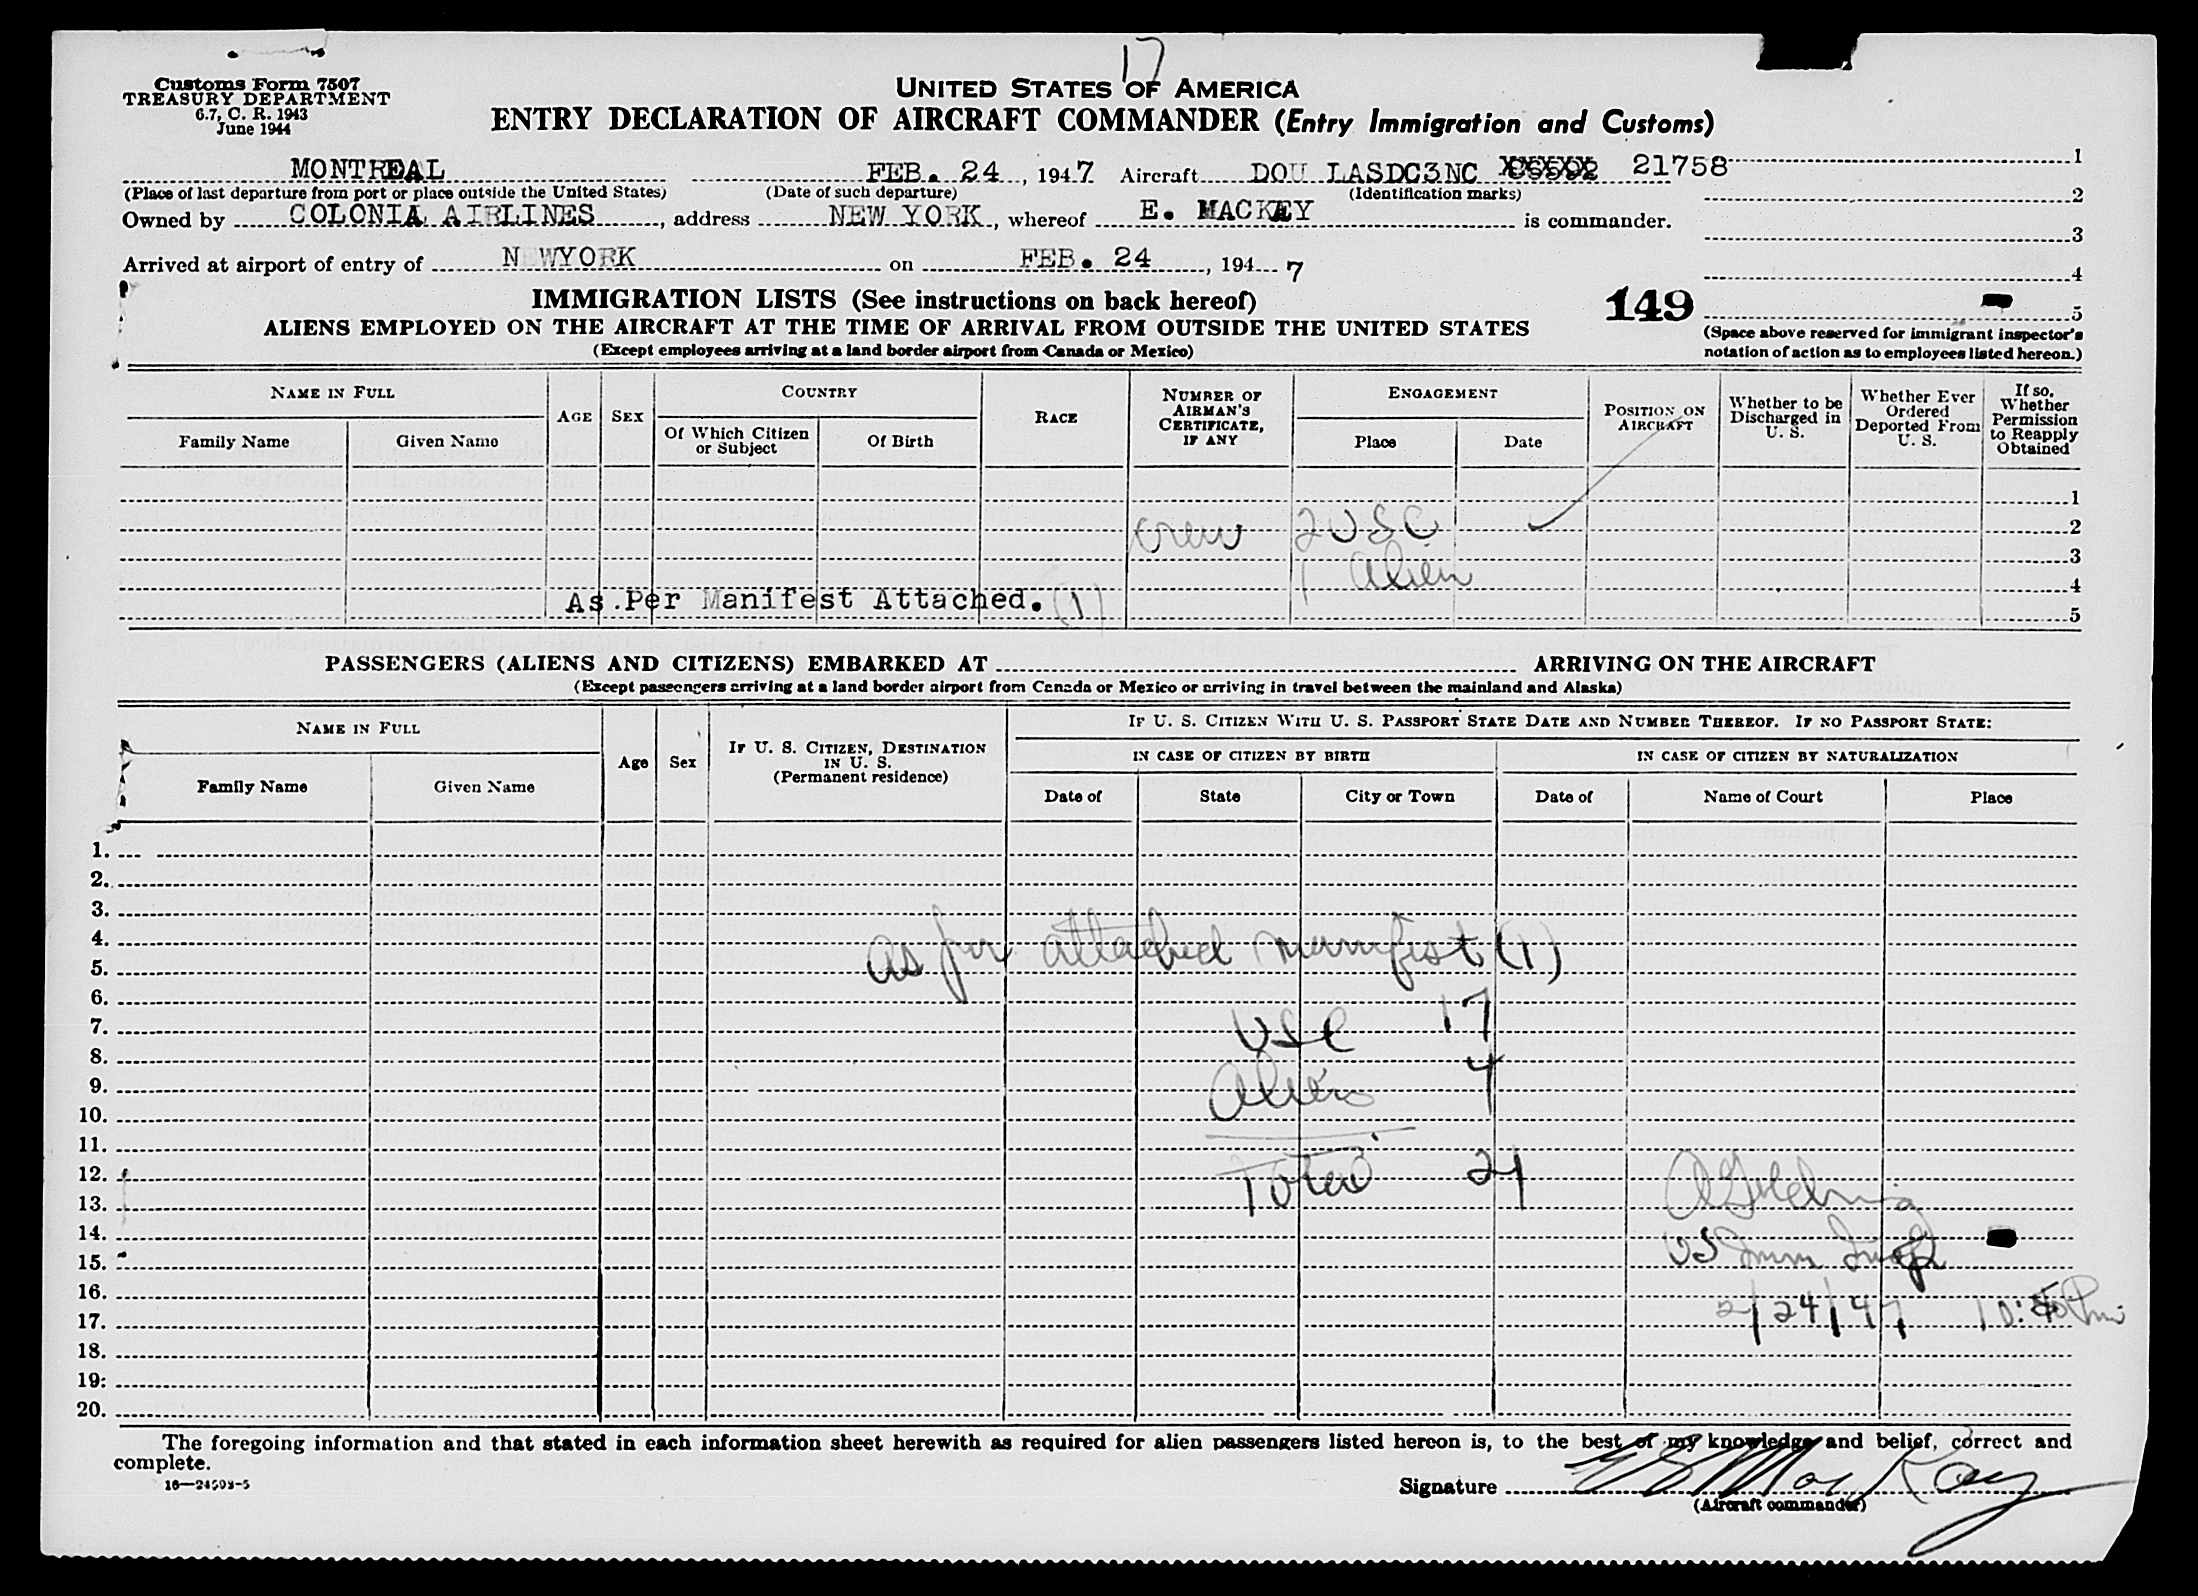 17
Customs Form 7507
TREASURY DEPARTMENT
6.7, C. R. 1943
June 1944
UNITED STATES OF AMERICA
ENTRY DECLARATION OF AIRCRAFT COMMANDER (Entry Immigration and Customs)
MONTREAL FEB. 24, 1947 Aircraft DOU LASDC3NC 21758 1
(Place of last departure from port or place outside the United States) (Date of such departure) (Identification marks) 2
Owned by COLONIA AIRLINES, address NEW YORK, whereof E. MACKEY is commander.
3
Arrived at airport of entry of NEWYORK on FEB. 24, 1947
4
IMMIGRATION LISTS (See instructions on back hereof) 149 5
ALIENS EMPLOYED ON THE AIRCRAFT AT THE TIME OF ARRIVAL FROM OUTSIDE THE UNITED STATES
(Except employees arriving at a land border airport from Canada or Mexico)
(Space above reserved for immigrant inspector's
notation of action as to employees listed hereon.)
NAME IN FULL
Family Name Given Name
AGE SEX
COUNTRY
Of Which Citizen or Subject Of Birth
RACE
NUMBER OF AIRMAN'S CERTIFICATE, IF ANY
ENGAGEMENT
Place Date
POSITION ON AIRCRAFT
Whether to be Discharged in U. S.
Whether Ever Ordered Deported From U. S.
If so, Whether Permission to Reapply Obtained
1
crew 2 USC 2
3
1 Alien 4
As Per Manifest Attached. (1) 5
PASSENGERS (ALIENS AND CITIZENS) EMBARKED AT ARRIVING ON THE AIRCRAFT
(Except passengers arriving at a land border airport from Canada or Mexico or arriving in travel between the mainland and Alaska)
NAME IN FULL
Family Name Given Name
Age Sex
IF U. S. CITIZEN, DESTINATION IN U. S.
(Permanent residence)
IF U. S. CITIZEN WITH U. S. PASSPORT STATE DATE AND NUMBER THEREOF. IF NO PASSPORT STATE:
IN CASE OF CITIZEN BY BIRTH IN CASE OF CITIZEN BY NATURALIZATION
Date of State City or Town Date of Name of Court Place
1.
2.
3.
4.
as per attached manifest (1)
5.
6.
7. USC 17
8.
9. Aliens 4
10.
11.
12. Total 21
13.
14.
15. US Imm Insp
16.
17. 2/24/47 10: Pm
18.
19:
20.
The foregoing information and that stated in each information sheet herewith as required for alien passengers listed hereon is, to the best of my knowledge and belief, correct and
complete.
16—24598-5
Signature E S MacKay
(Aircraft commander)